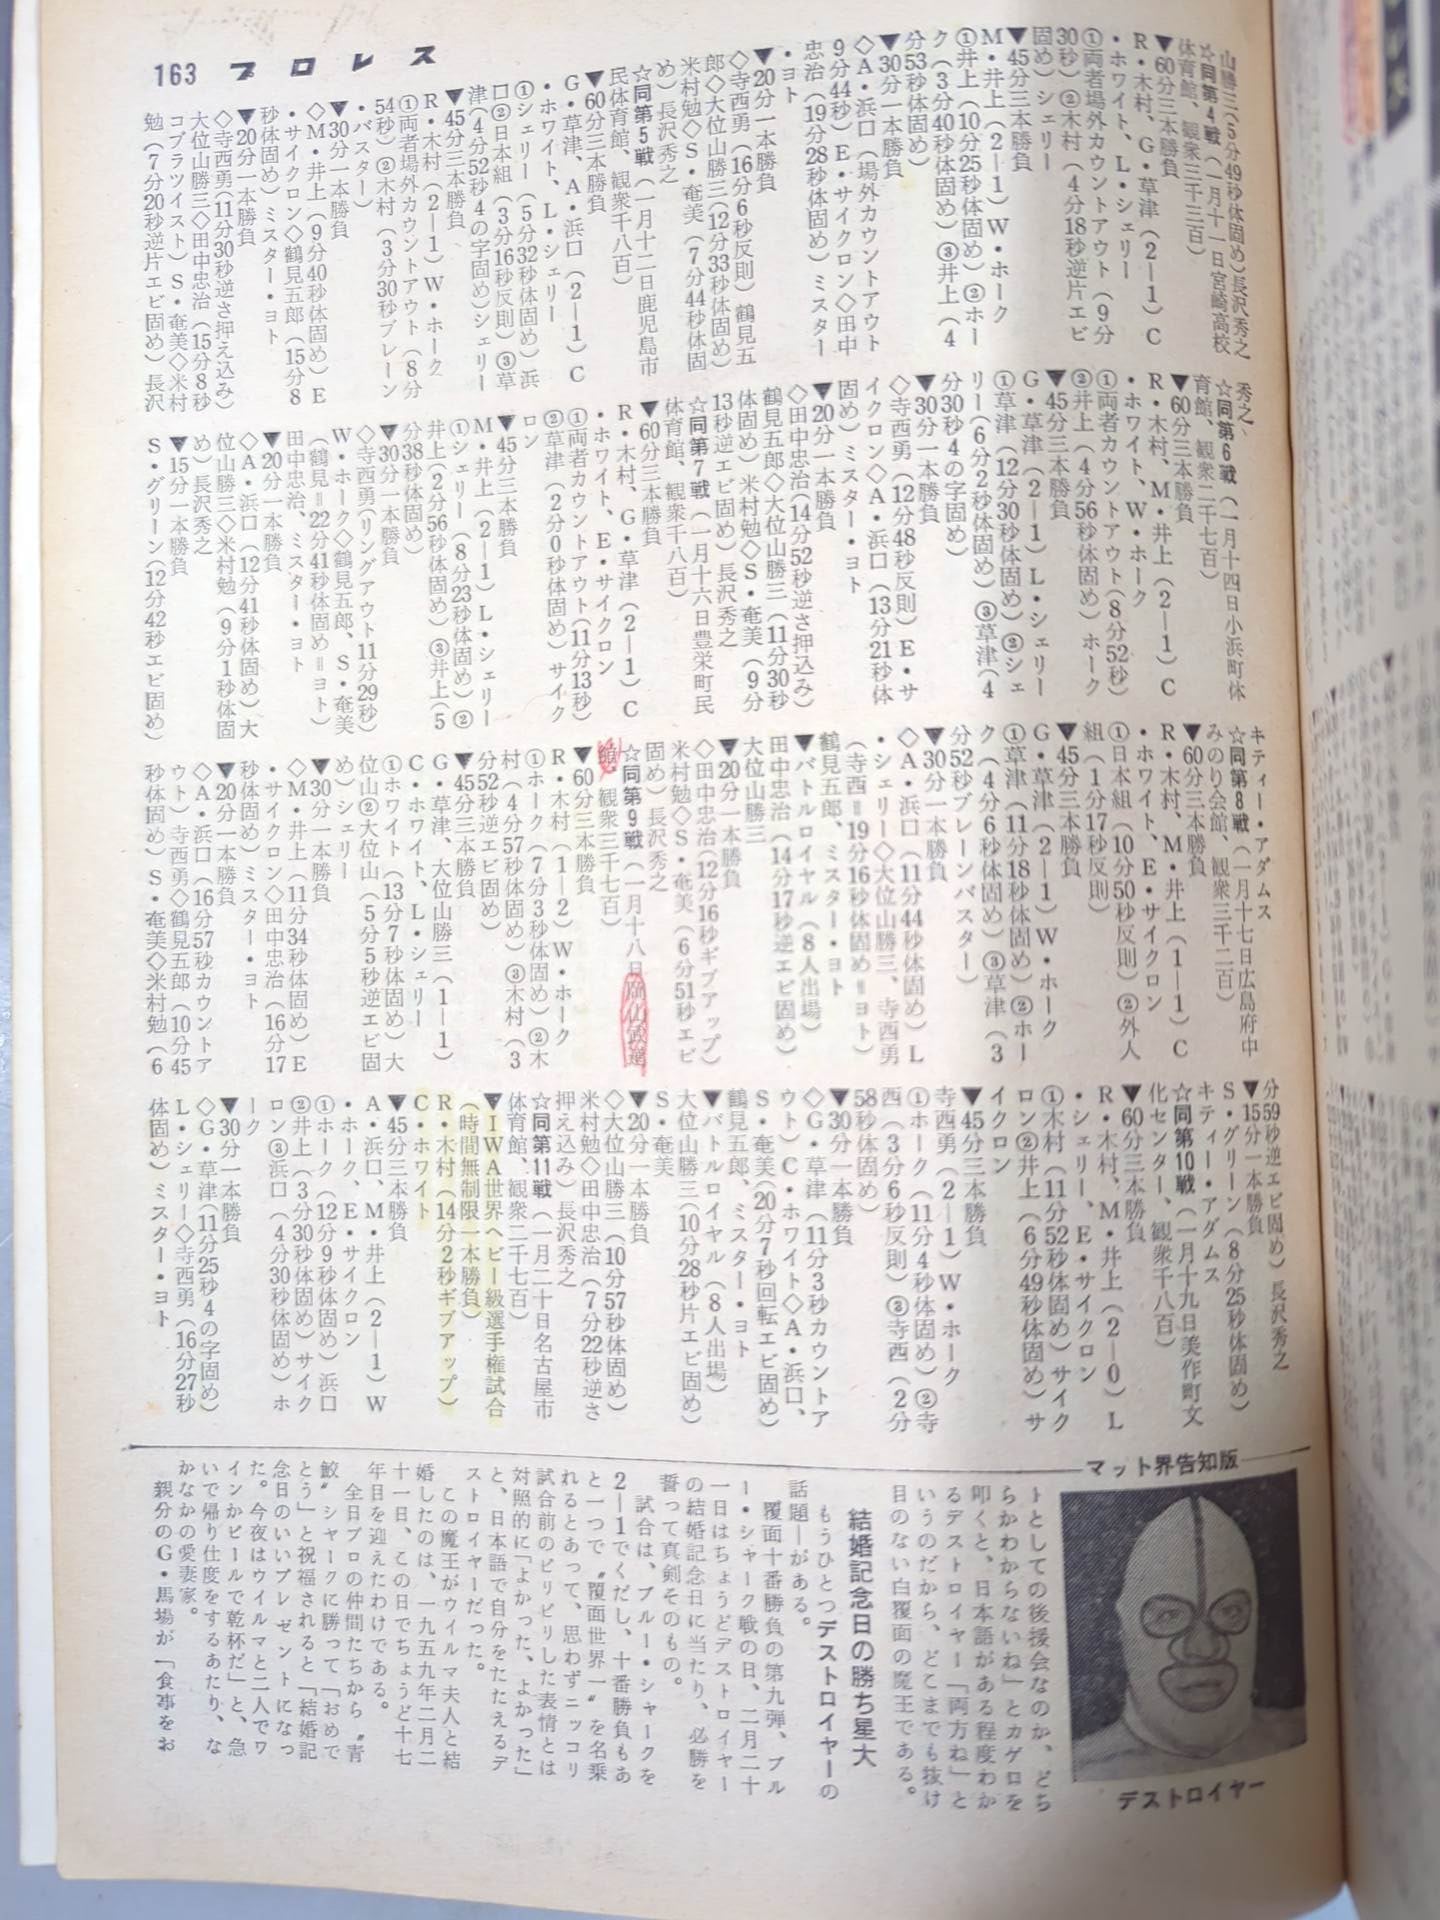 163 プロレス
山勝三(5分49秒体固め)長沢秀之
☆同第4戦(一月十一日宮崎高校
体育館、観衆三千三百)
▼60分三本勝負
R・木村、G・草津(2―1)C
・ホワイト、L・シェリー
①両者場外カウントアウト(9分
30秒)②木村(4分18秒逆片エビ
固め)シェリー
▼45分三本勝負
M・井上(2―1)W・ホーク
①井上(10分25秒体固め)②ホー
ク(3分40秒体固め)③井上(4
分53秒体固め)
▼30分一本勝負
◇A・浜口(場外カウントアウト
9分44秒)E・サイクロン◇田中
忠治(19分28秒体固め)ミスター
・ヨト
▼20分一本勝負
◇寺西勇(16分6秒反則)鶴見五
郎◇大位山勝三(12分33秒体固め)
米村勉◇S・奄美(7分44秒体固
め)長沢秀之
☆同第5戦(一月十二日鹿児島市
民体育館、観衆千八百)
▼60分三本勝負
G・草津、A・浜口(2―1)C
・ホワイト、L・シェリー
①シェリー(5分32秒体固め)浜
口②日本組(3分16秒反則)③草
津(4分52秒4の字固め)シェリー
▼45分三本勝負
R・木村(2―1)W・ホーク
①両者場外カウントアウト(8分
54秒)②木村(3分30秒ブレーン
・バスター)
▼30分一本勝負
◇M・井上(9分40秒体固め)E
・サイクロン◇鶴見五郎(15分8
秒体固め)ミスター・ヨト
▼20分一本勝負
◇寺西勇(11分30秒逆さ押え込み)
大位山勝三◇田中忠治(15分8秒
コブラツイスト)S・奄美◇米村
勉(7分20秒逆片エビ固め)長沢
秀之
☆同第6戦(一月十四日小浜町休
育館、観衆二千七百)
▼60分三本勝負
R・木村、M・井上(2―1)C
・ホワイト、W・ホーク
①両者カウントアウト(8分52秒)
②井上(4分56秒体固め)ホーク
▼45分三本勝負
G・草津(2―1)L・シェリー
①草津(12分30秒体固め)②シェ
リー(6分2秒体固め)③草津(4
分30秒4の字固め)
▼30分一本勝負
◇寺西勇(12分48秒反則)E・サ
イクロン◇A・浜口(13分21秒体
固め)ミスター・ヨト
▼20分一本勝負
◇田中忠治(14分52秒逆さ押込み)
鶴見五郎◇大位山勝三(11分30秒
体固め)米村勉◇S・奄美(9分
13秒逆エビ固め)長沢秀之
☆同第7戦(一月十六日豊栄町民
体育館、観衆千八百)
▼60分三本勝負
R・木村、G・草津(2―1)C
・ホワイト、E・サイクロン
①両者カウントアウト(11分13秒)
②草津(2分0秒体固め)サイク
ロン
▼45分三本勝負
M・井上(2―1)L・シェリー
①シェリー(8分23秒体固め)②
井上(2分56秒体固め)③井上(5
分38秒体固め)
▼30分一本勝負
◇寺西勇(リングアウト11分29秒)
W・ホーク◇鶴見五郎、S・奄美
(鶴見=22分41秒体固め=ヨト)
田中忠治、ミスター・ヨト
▼20分一本勝負
◇A・浜口(12分41秒体固め)大
位山勝三◇米村勉(9分1秒体固
め)長沢秀之
▼15分一本勝負
S・グリーン(12分42秒エビ固め)
キティー・アダムス
☆同第8戦(一月十七日広島府中
みのり会館、観衆三千二百)
▼60分三本勝負
R・木村、M・井上(1―1)C
・ホワイト、E・サイクロン
①日本組(10分50秒反則)②外人
組(1分17秒反則)
▼45分三本勝負
G・草津(2―1)W・ホーク
①草津(11分18秒体固め)②ホー
ク(4分6秒体固め)③草津(3
分52秒ブレーンバスター)
▼30分一本勝負
◇A・浜口(11分44秒体固め)L
・シェリー◇大位山勝三、寺西勇
(寺西=19分16秒体固め=ヨト)
鶴見五郎、ミスター・ヨト
▼バトルロイヤル(8人出場)
田中忠治(14分17秒逆エビ固め)
大位山勝三
▼20分一本勝負
◇田中忠治(12分16秒ギブアップ)
米村勉◇S・奄美(6分51秒エビ
固め)長沢秀之
☆同第9戦(一月十八日岡山武道
館、観衆三千七百)
▼60分三本勝負
R・木村(1―2)W・ホーク
①ホーク(7分3秒体固め)②木
村(4分57秒体固め)③木村(3
分52秒逆エビ固め)
▼45分三本勝負
G・草津、大位山勝三(1―1)
C・ホワイト、L・シェリー
①ホワイト(13分7秒体固め)大
位山②大位山(5分5秒逆エビ固
め)シェリー
▼30分一本勝負
◇M・井上(11分34秒体固め)E
・サイクロン◇田中忠治(16分17
秒体固め)ミスター・ヨト
▼20分一本勝負
◇A・浜口(16分57秒カウントア
ウト)寺西勇◇鶴見五郎(10分45
秒体固め)S・奄美◇米村勉(6
分59秒逆エビ固め)長沢秀之
▼15分一本勝負
S・グリーン(8分25秒体固め)
キティー・アダムス
☆同第10戦(一月十九日美作町文
化センター、観衆千八百)
▼60分三本勝負
R・木村、M・井上(2―0)L
・シェリー、E・サイクロン
①木村(11分52秒体固め)サイク
ロン②井上(6分49秒体固め)サ
イクロン
▼45分三本勝負
寺西勇(2―1)W・ホーク
①ホーク(11分4秒体固め)②寺
西(3分6秒反則)③寺西(2分
58秒体固め)
▼30分一本勝負
◇G・草津(11分3秒カウントア
ウト)C・ホワイト◇A・浜口、
S・奄美(20分7秒回転エビ固め)
鶴見五郎、ミスター・ヨト
▼バトルロイヤル(8人出場)
大位山勝三(10分28秒片エビ固め)
S・奄美
▼20分一本勝負
◇大位山勝三(10分57秒体固め)
米村勉◇田中忠治(7分22秒逆さ
押え込み)長沢秀之
☆同第11戦(一月二十日名古屋市
体育館、観衆二千七百)
▼IWA世界ヘビー級選手権試合
(時間無制限一本勝負)
R・木村(14分2秒ギブアップ)
C・ホワイト
▼45分三本勝負
A・浜口、M・井上(2―1)W
・ホーク、E・サイクロン
①ホーク(12分9秒体固め)浜口
②井上(3分30秒体固め)サイク
ロン③浜口(4分30秒体固め)ホ
ーク
▼30分一本勝負
◇G・草津(11分25秒4の字固め)
L・シェリー◇寺西勇(16分27秒
体固め)ミスター・ヨト
マット界告知版
デストロイヤー
トとしての後援会なのか、どち
らかわからないね」とカゲロを
叩くと、日本語がある程度わか
るデストロイヤー「両方ね」と
いうのだから、どこまでも抜け
目のない白覆面の魔王である。
結婚記念日の勝ち星大
もうひとつデストロイヤーの
話題―がある。
覆面十番勝負の第九弾、ブル
ー・シャーク戦の日、二月二十
一日はちょうどデストロイヤー
の結婚記念日に当たり、必勝を
誓って真剣そのもの。
試合は、ブルー・シャークを
2―1でくだし、十番勝負もあ
と一つで〝覆面世界一〟を名乗
れるとあって、思わずニッコリ
試合前のピリピリした表情とは
対照的に「よかった、よかった」
と、日本語で自分をたたえるデ
ストロイヤーだった。
この魔王がウイルマ夫人と結
婚したのは、一九五九年二月二
十一日、この日でちょうど十七
年目を迎えたわけである。
全日プロの仲間たちから〝青
鮫〟シャークに勝って「おめで
とう」と祝福されると「結婚記
念日のいいプレゼントになっ
た。今夜はウイルマと二人でワ
インかビールで乾杯だ」と、急
いで帰り仕度をするあたり、な
かなかの愛妻家。
親分のG・馬場が「食事をお